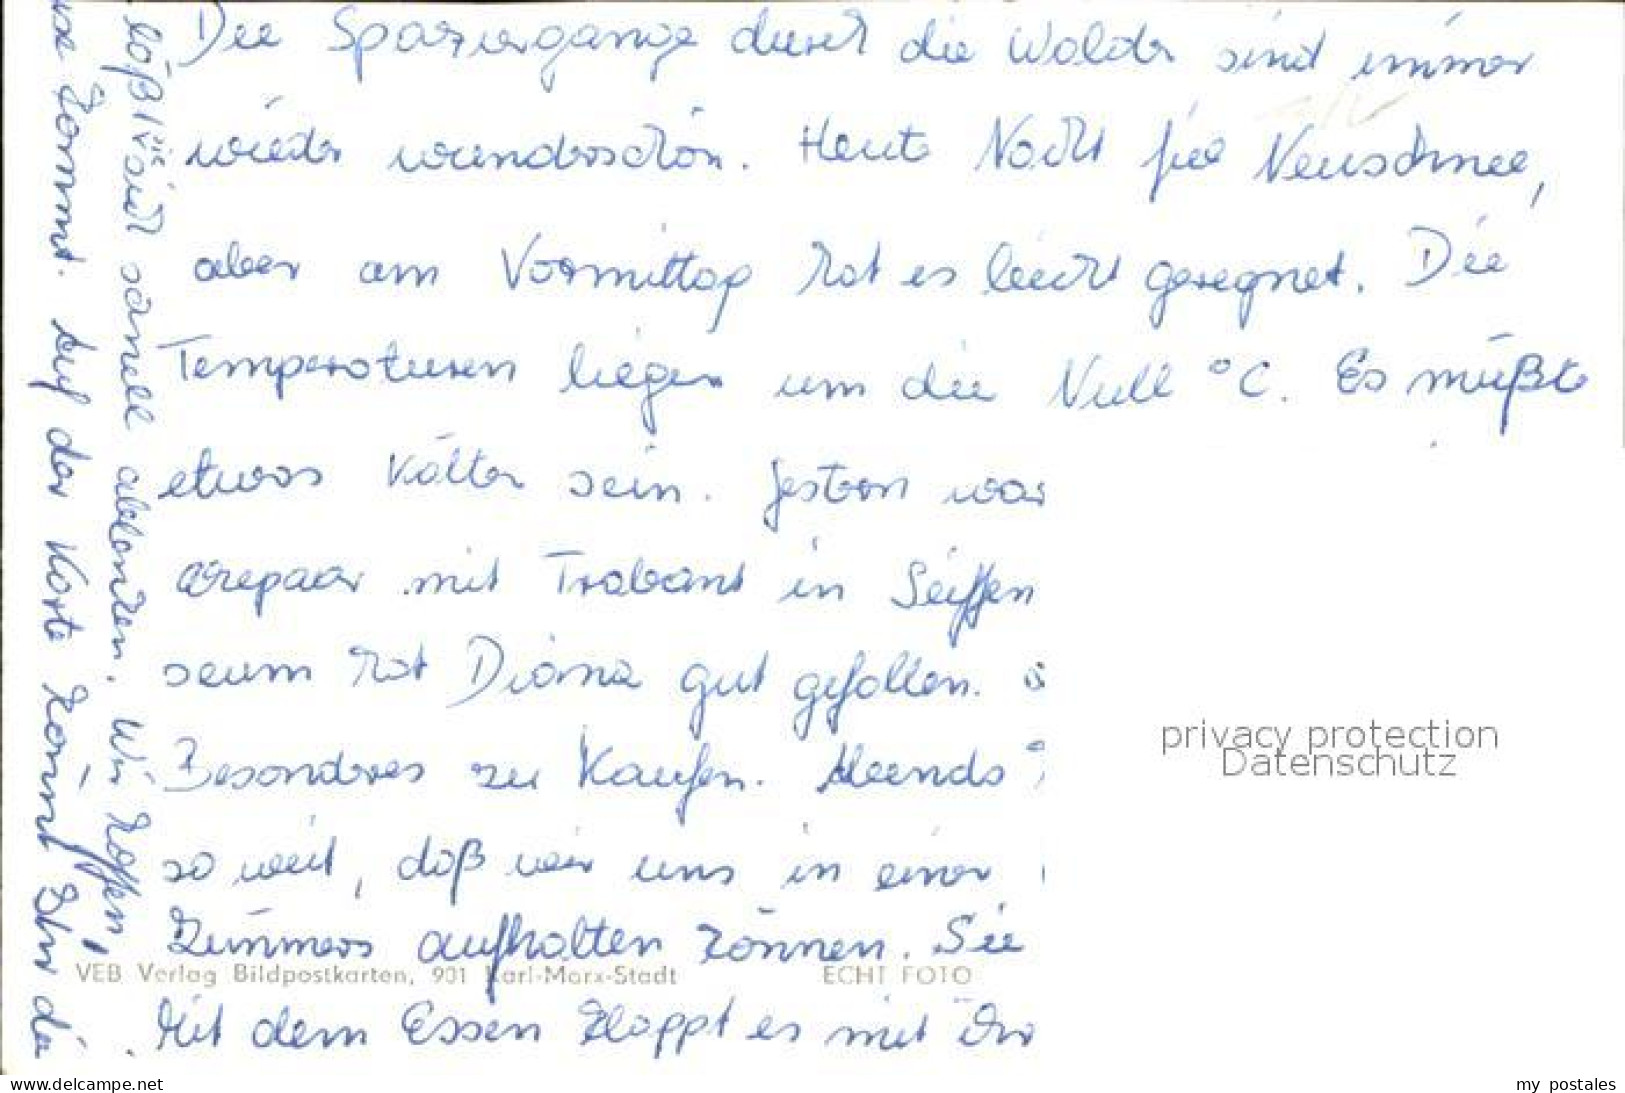 Die Spaziergänge durch die Wälder sind immer
wieder wunderschön. Heute Nacht fiel Neuschnee,
aber am Vormittag hat es leicht geregnet. Die
Temperaturen liegen um die Null °C. Es müßte
etwas kälter sein. Gestern war
arepaar mit Trabant in Seiffen
seum hat Diana gut gefallen.
Besonderes zu kaufen. Abends
so weit, daß wir uns in einer
Zimmers aufhalten können. Sie
Mit dem Essen klappt es mit
läßt sie sich schnell ablenken. Wir hoffen,
kommt. Auf der Karte könnt Ihr die
VEB Verlag Bildpostkarten, 901 Karl-Marx-Stadt
ECHT FOTO
privacy protection
Datenschutz
www.delcampe.net
my postales